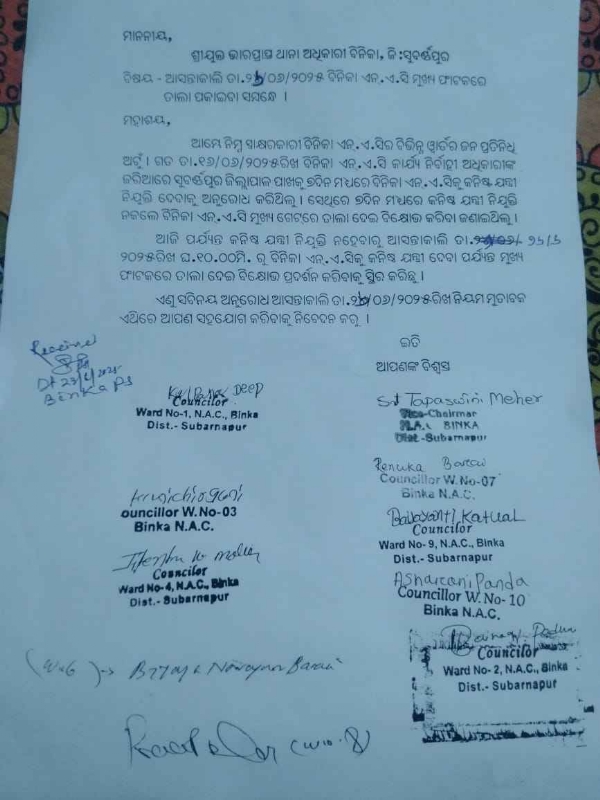 ମାନନୀୟ,
ଶ୍ରୀଯୁକ୍ତ ଭାରପ୍ରାପ୍ତ ଥାନା ଅଧିକାରୀ ବିନିକା, ଜି:ସୁବର୍ଣ୍ଣପୁର
ବିଷୟ - ଆସନ୍ତାକାଲି ତା.୨୬/୦୬/୨୦୨୫ ବିନିକା ଏନ୍.ଏ.ସି ମୁଖ୍ୟ ଫାଟକରେ
ତାଲା ପକାଇବା ସମ୍ବନ୍ଧେ ।
ମହାଶୟ,
ଆମ୍ଭେ ନିମ୍ନ ସାକ୍ଷରକାରୀ ବିନିକା ଏନ୍.ଏ.ସିର ବିଭିନ୍ନ ୱାର୍ଡର ଜନ ପ୍ରତିନିଧି
ଅଟୁଁ । ଗତ ତା.୧୬/୦୬/୨୦୨୫ରିଖ ବିନିକା ଏନ୍.ଏ.ସି କାର୍ଯ୍ୟ ନିର୍ବାହୀ ଅଧିକାରୀଙ୍କ
ଜରିଆରେ ସୁବର୍ଣ୍ଣପୁର ଜିଲ୍ଲାପାଳ ପାଖକୁ ୭ଦିନ ମଧ୍ୟରେ ବିନିକା ଏନ୍.ଏ.ସିକୁ କନିଷ୍ଠ ଯନ୍ତ୍ରୀ
ନିଯୁକ୍ତି ଦେବାକୁ ଅନୁରୋଧ କରିଥିଲୁ । ସେଥିରେ ୭ଦିନ ମଧ୍ୟରେ କନିଷ୍ଠ ଯନ୍ତ୍ରୀ ନିଯୁକ୍ତି
ନକଲେ ବିନିକା ଏନ୍.ଏ.ସି ମୁଖ୍ୟ ଗେଟ୍‌ରେ ତାଲା ଦେଇ ବିକ୍ଷୋଭ କରିବା ଜଣାଇଥିଲୁ ।
ଆଜି ପର୍ଯ୍ୟନ୍ତ କନିଷ୍ଠ ଯନ୍ତ୍ରୀ ନିଯୁକ୍ତି ନହେବାରୁ ଆସନ୍ତାକାଲି ତା.
୨୦୨୫ରିଖ ଘ.୧୦.୦୦ମି. ରୁ ବିନିକା ଏନ୍.ଏ.ସିକୁ କନିଷ୍ଠ ଯନ୍ତ୍ରୀ ଦେବା ପର୍ଯ୍ୟନ୍ତ ମୁଖ୍ୟ
ଫାଟକରେ ତାଲା ଦେଇ ବିକ୍ଷୋଭ ପ୍ରଦର୍ଶନ କରିବାକୁ ସ୍ଥିର କରିଛୁ ।
ଏଣୁ ସବିନୟ ଅନୁରୋଧ ଆସନ୍ତାକାଲି ତା.୨୬/୦୬/୨୦୨୫ରିଖ ନିୟମ ମୁତାବକ
ଏଥିରେ ଆପଣ ସହଯୋଗ କରିବାକୁ ନିବେଦନ କରୁ ।
ଇତି
ଆପଣଙ୍କ ବିଶ୍ୱସ୍ତ
Received
Binka PS
Deep
Councilor
Ward No-1, N.A.C., Binka
Dist.- Subarnapur
Smt Tapaswini Meher
Vice-Chairman
N.A.C BINKA
Dist.-Subarnapur
Renuka Barai
Councillor W.No-07
Binka N.A.C.
ouncillor W.No-03
Binka N.A.C.
Katual
Councilor
Ward No- 9, N.A.C., Binka
Dist.- Subarnapur
Councilor
Ward No-4, N.A.C., Binka
Dist.- Subarnapur
Asharani Panda
Councillor W.No- 10
Binka N.A.C.
Councilor
Ward No- 2, N.A.C., Binka
Dist.- Subarnapur
(W-6) → Bijaya Narayan Barai
(W no. 8)